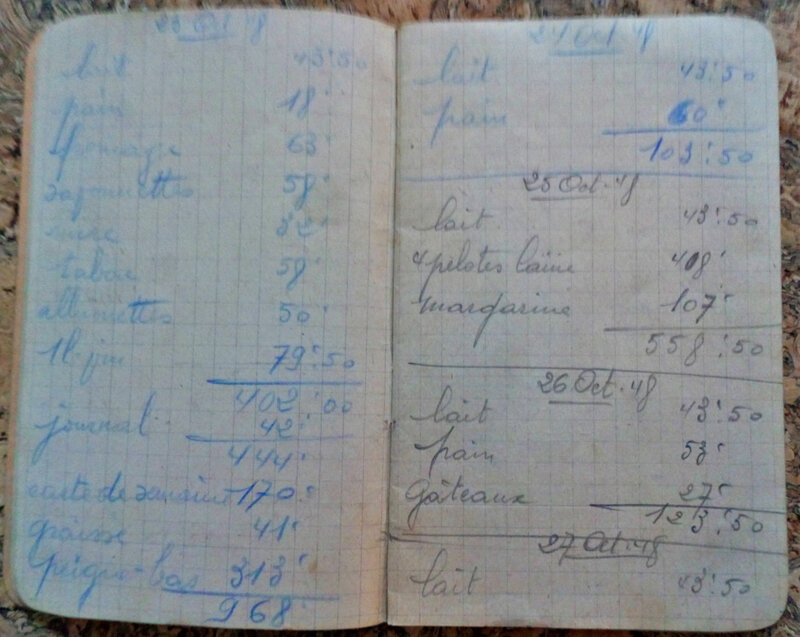 23 Oct 48
lait 43:50
pain 18:
fromage 63:
savonnettes 58:
tabac 58:
allumettes 50:
79:50
402:00
journal 42:
444:
170:
graisse 41:
313:
968:
24 Oct 48
lait 43:50
pain 60:
103:50
25 Oct. 48
lait 43:50
4 pelotes laine 408:
margarine 107:
558:50
26 Oct. 48
lait 43:50
pain 53:
Gâteaux 27:
123:50
27 Oct. 48
lait 43:50